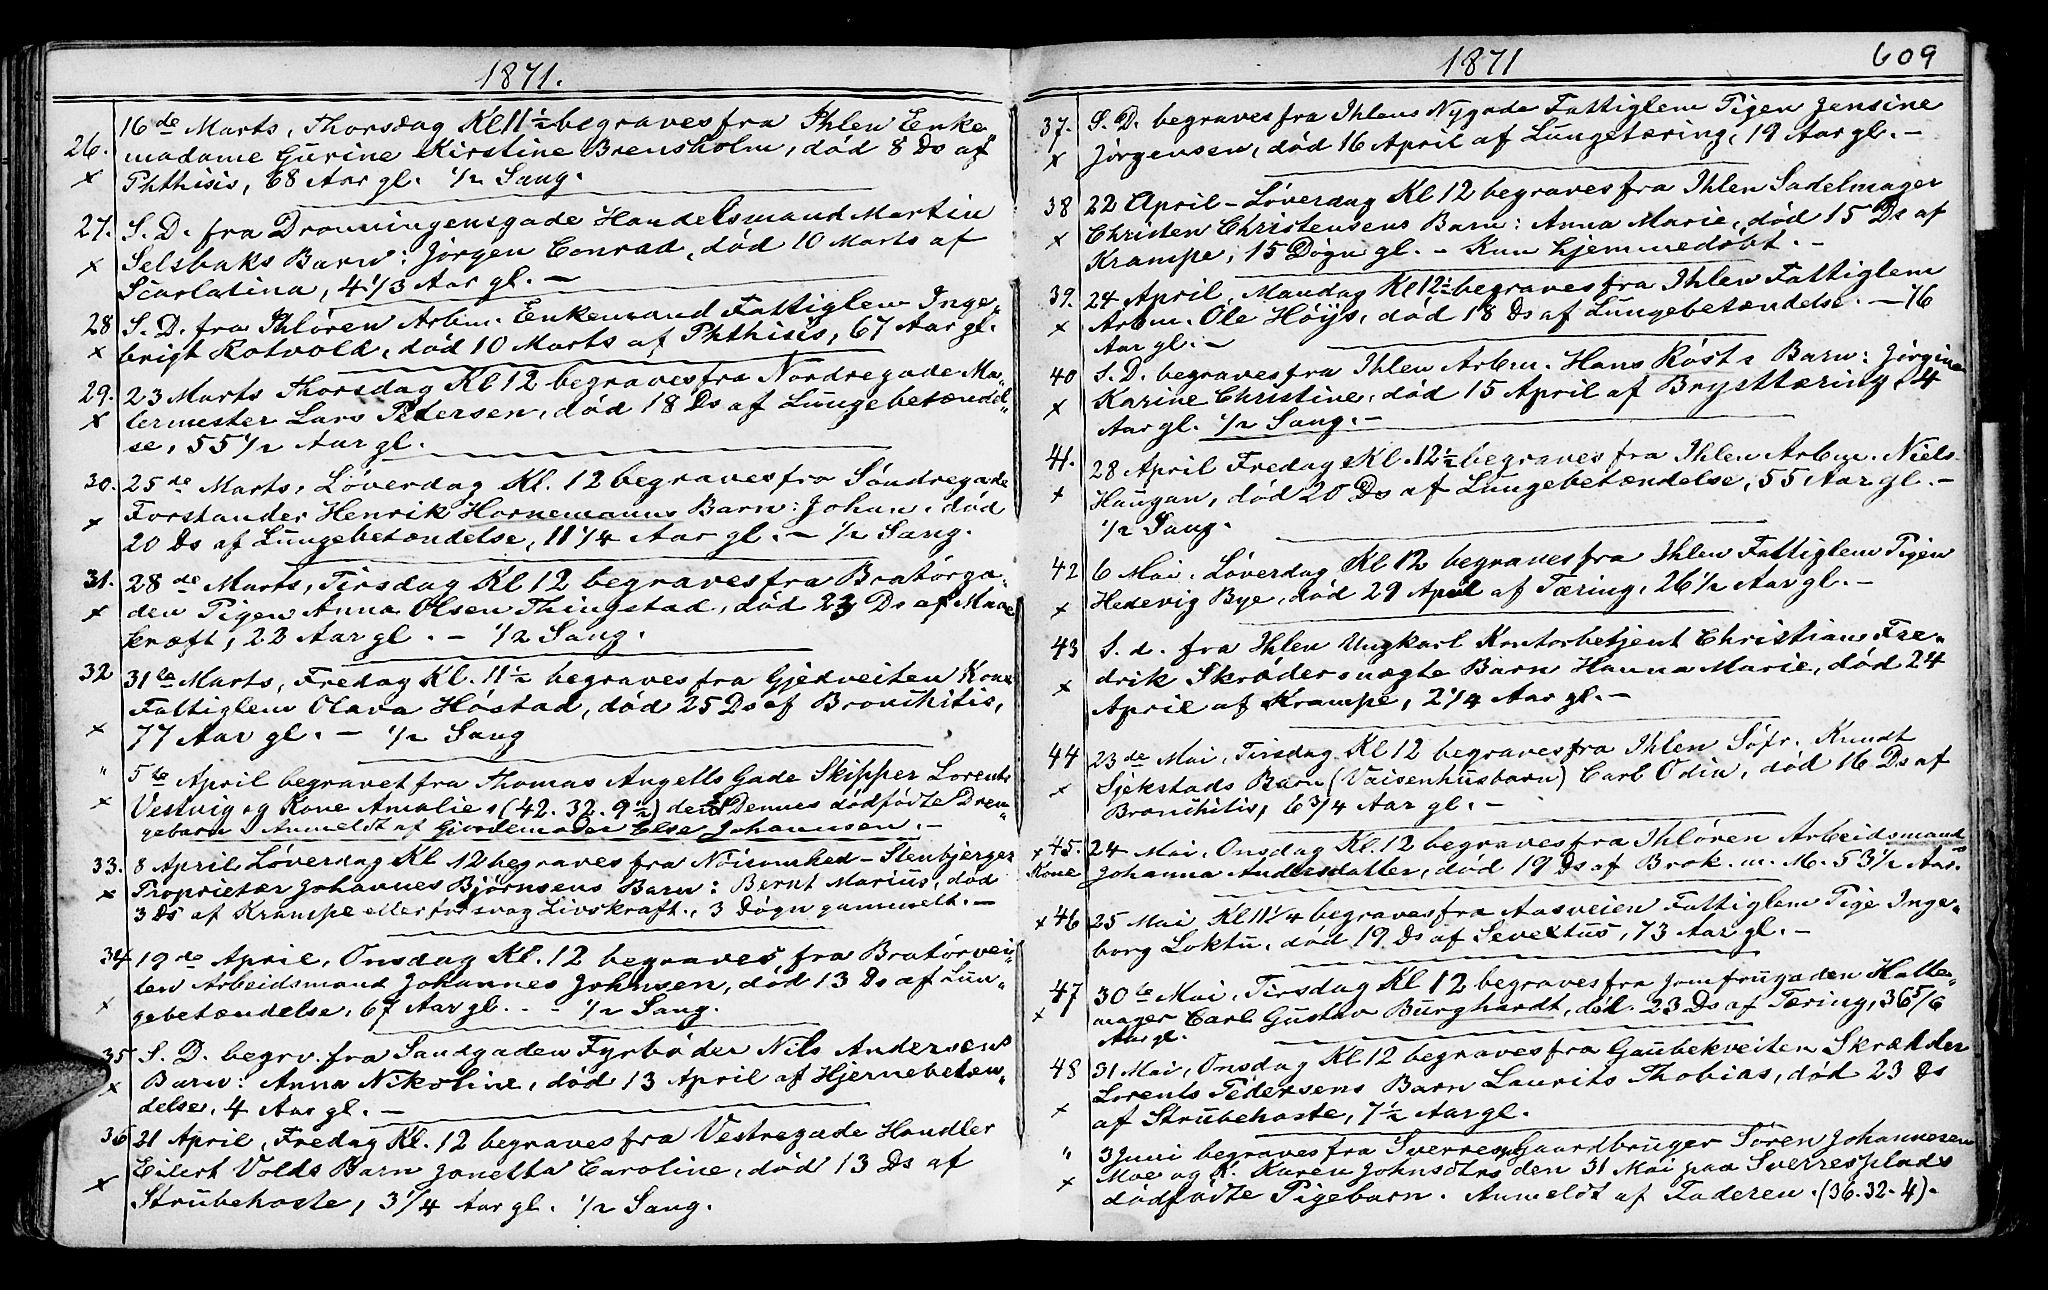 1871.
26. 16de Marts, Thorsdag Kl 11 1/2 begraves fra Ihlen Enke„
madame Gurine Kirstine Brensholm, død 8 Ds af
x Phthisis, 68 Aar gl. 1/2 Sang.
27. S. D. fra Dronningensgade Handelsmand Martin
x Selsbaks Barn: Jørgen Conrad, død 10 Marts af
Scarlatina, 4 1/3 Aar gl. —
28 S. D. fra Ihløren Arbm. Enkemand Fattiglem Inge„
x brigt Rotvold, død 10 Marts af Phthisis, 67 Aar gl.
29. 23 Marts Thorsdag Kl 12 begraves fra Nordregade Ma„
x lermester Lars Petersen, død 18 Ds af Lungebetændel„
se, 55 1/2 Aar gl.
30. 25de Marts, Løverdag Kl. 12 begraves fra Søndregade
x Forstander Henrik Hornemanns Barn: Johan, død
20 Ds af Lungebetændelse, 11 1/4 Aar gl. — 1/2 Sang.
31. 28de Marts, Tirsdag Kl 12 begraves fra Bratørga„
x den Pigen Anna Olsen Thingstad, død 23 Ds af Mave
kræft, 22 Aar gl. — 1/2 Sang.
32 31te Marts, Fredag Kl. 11 1/2 begraves fra Gjedveiten Kone
Fattiglem Olava Høstad, død 25 Ds af Bronchitis,
x 77 Aar gl. — 1/2 Sang
„ 5te April begravet fra Thomas Angells Gade Skipper Lorents
x Vestvig og Kone Amalies (42. 32. 9 1/2) den Dennes dødfødte Dren„
gebarn. Anmeldt af Gjordemoder Else Johannsen. —
33. 8 April, Løverdag Kl 12 begraves fra Nøisomhed - Stenbjerget
x Proprietær Johannes Bjørnsens Barn: Bernt Marius, død
3 Ds af Krampe eller for svag Livskraft, 3 Døgn gammelt. —
34 19de April, Onsdag Kl. 12 begraves fra Bratørvei„
ten Arbeidsmand Johannes Johnsen, død 13 Ds af Lun„
x gebetændelse, 67 Aar gl. . - 1/2 Sang.
35 S. D. begrv. fra Sandgaden Fyrbøder Nils Andersens
x Barn: Anna Nikoline, død 13 April af Hjernebetæn„
delse, 4 Aar gl. —
36 21 April, Fredag Kl. 12 begraves fra Vestregade Handler
Eilert Volds Barn Janetta Caroline, død 13 Ds af
x Strubehoste, 3 1/4 Aar gl. 1/2 Sang.
1871
609
37. S. D. begraves fra Ihlens Nygade Fattiglem Pigen Jensine
x Jørgensen, død 16 April af Lungetæring, 19 Aar gl. —
38 22 April - Løverdag Kl 12 begraves fra Ihlen Sadelmager
x Christen Christensens Barn: Anna Marie, død 15 Ds af
Krampe, 15 Døgn gl. - Kun hjemmedøbt. —
39. 24 April, Mandag Kl 12 1/2 begraves fra Ihlen Fattiglem
x Arbm. Ole Høijs, død 18 Ds af Lungebetændelse. — 76
Aar gl. —
40 S. D. begraves fra Ihlen Arbm. Hans Røsts Barn: Jørgine
x Karine Christine, død 15 April af Brysttæring, 4
Aar gl. 1/2 Sang. —
41. 28 April Fredag Kl. 12 1/2 begraves fra Ihlen Arbm. Niels
x Haugan, død 20 Ds af Lungebetændelse, 55 Aar gl. —
1/2 Sang.
42 6 Mai, Løverdag Kl 12 begraves fra Ihlen Fattiglem Pigen
x Hedevig Bye, død 29 April af Tæring, 26 1/2 Aar gl. —
43 S. d. fra Ihlen Ungkarl Kontorbetjent Christian Fre„
drik Skrøders uægte Barn Hanna Marie, død 24
x April af Krampe, 2 1/4 Aar gl. —
44 23de Mai, Tirsdag Kl 12 begraves fra Ihlen Søfr. Knudt
x Sjekstads Barn (Vaisenhusbarn) Carl Odin, død 16 Ds af
Bronchitis, 6 3/4 Aar gl. —
x 45. 24 Mai, Onsdag Kl 12 begraves fra Ihløren Arbeidsmands
Kone Johanna Andersdatter, død 19 Ds af Brok. m. M. 53 1/2 Aar.
x 46 25 Mai Kl 11 1/4 begraves fra Aasveien Fattiglem Pige Inge„
borg Loktu, død 19 Ds af Senectus, 73 Aar gl. —
47 30te Mai, Tirsdag Kl 12 begraves fra Jomfrugaden Hatte„
x mager Carl Gustav Burghardt, død. 23 Ds af Tæring, 36 5/6
Aar gl.
48 31 Mai, Onsdag Kl 12 begraves fra Gaubekveiten Skrædder
Lorents Pedersens Barn Laurits Thobias, død 23 Ds
x af Strubehoste, 7 1/2 Aar gl.
„ 3 Juni begraves fra Sverresp Gaardbruger Søren Johannesen
x Moe og K. Karen Johnsdtrs den 31 Mai paa Sverresplads
dødfødte Pigebarn. Anmeldt af Faderen. (36. 32. 4).